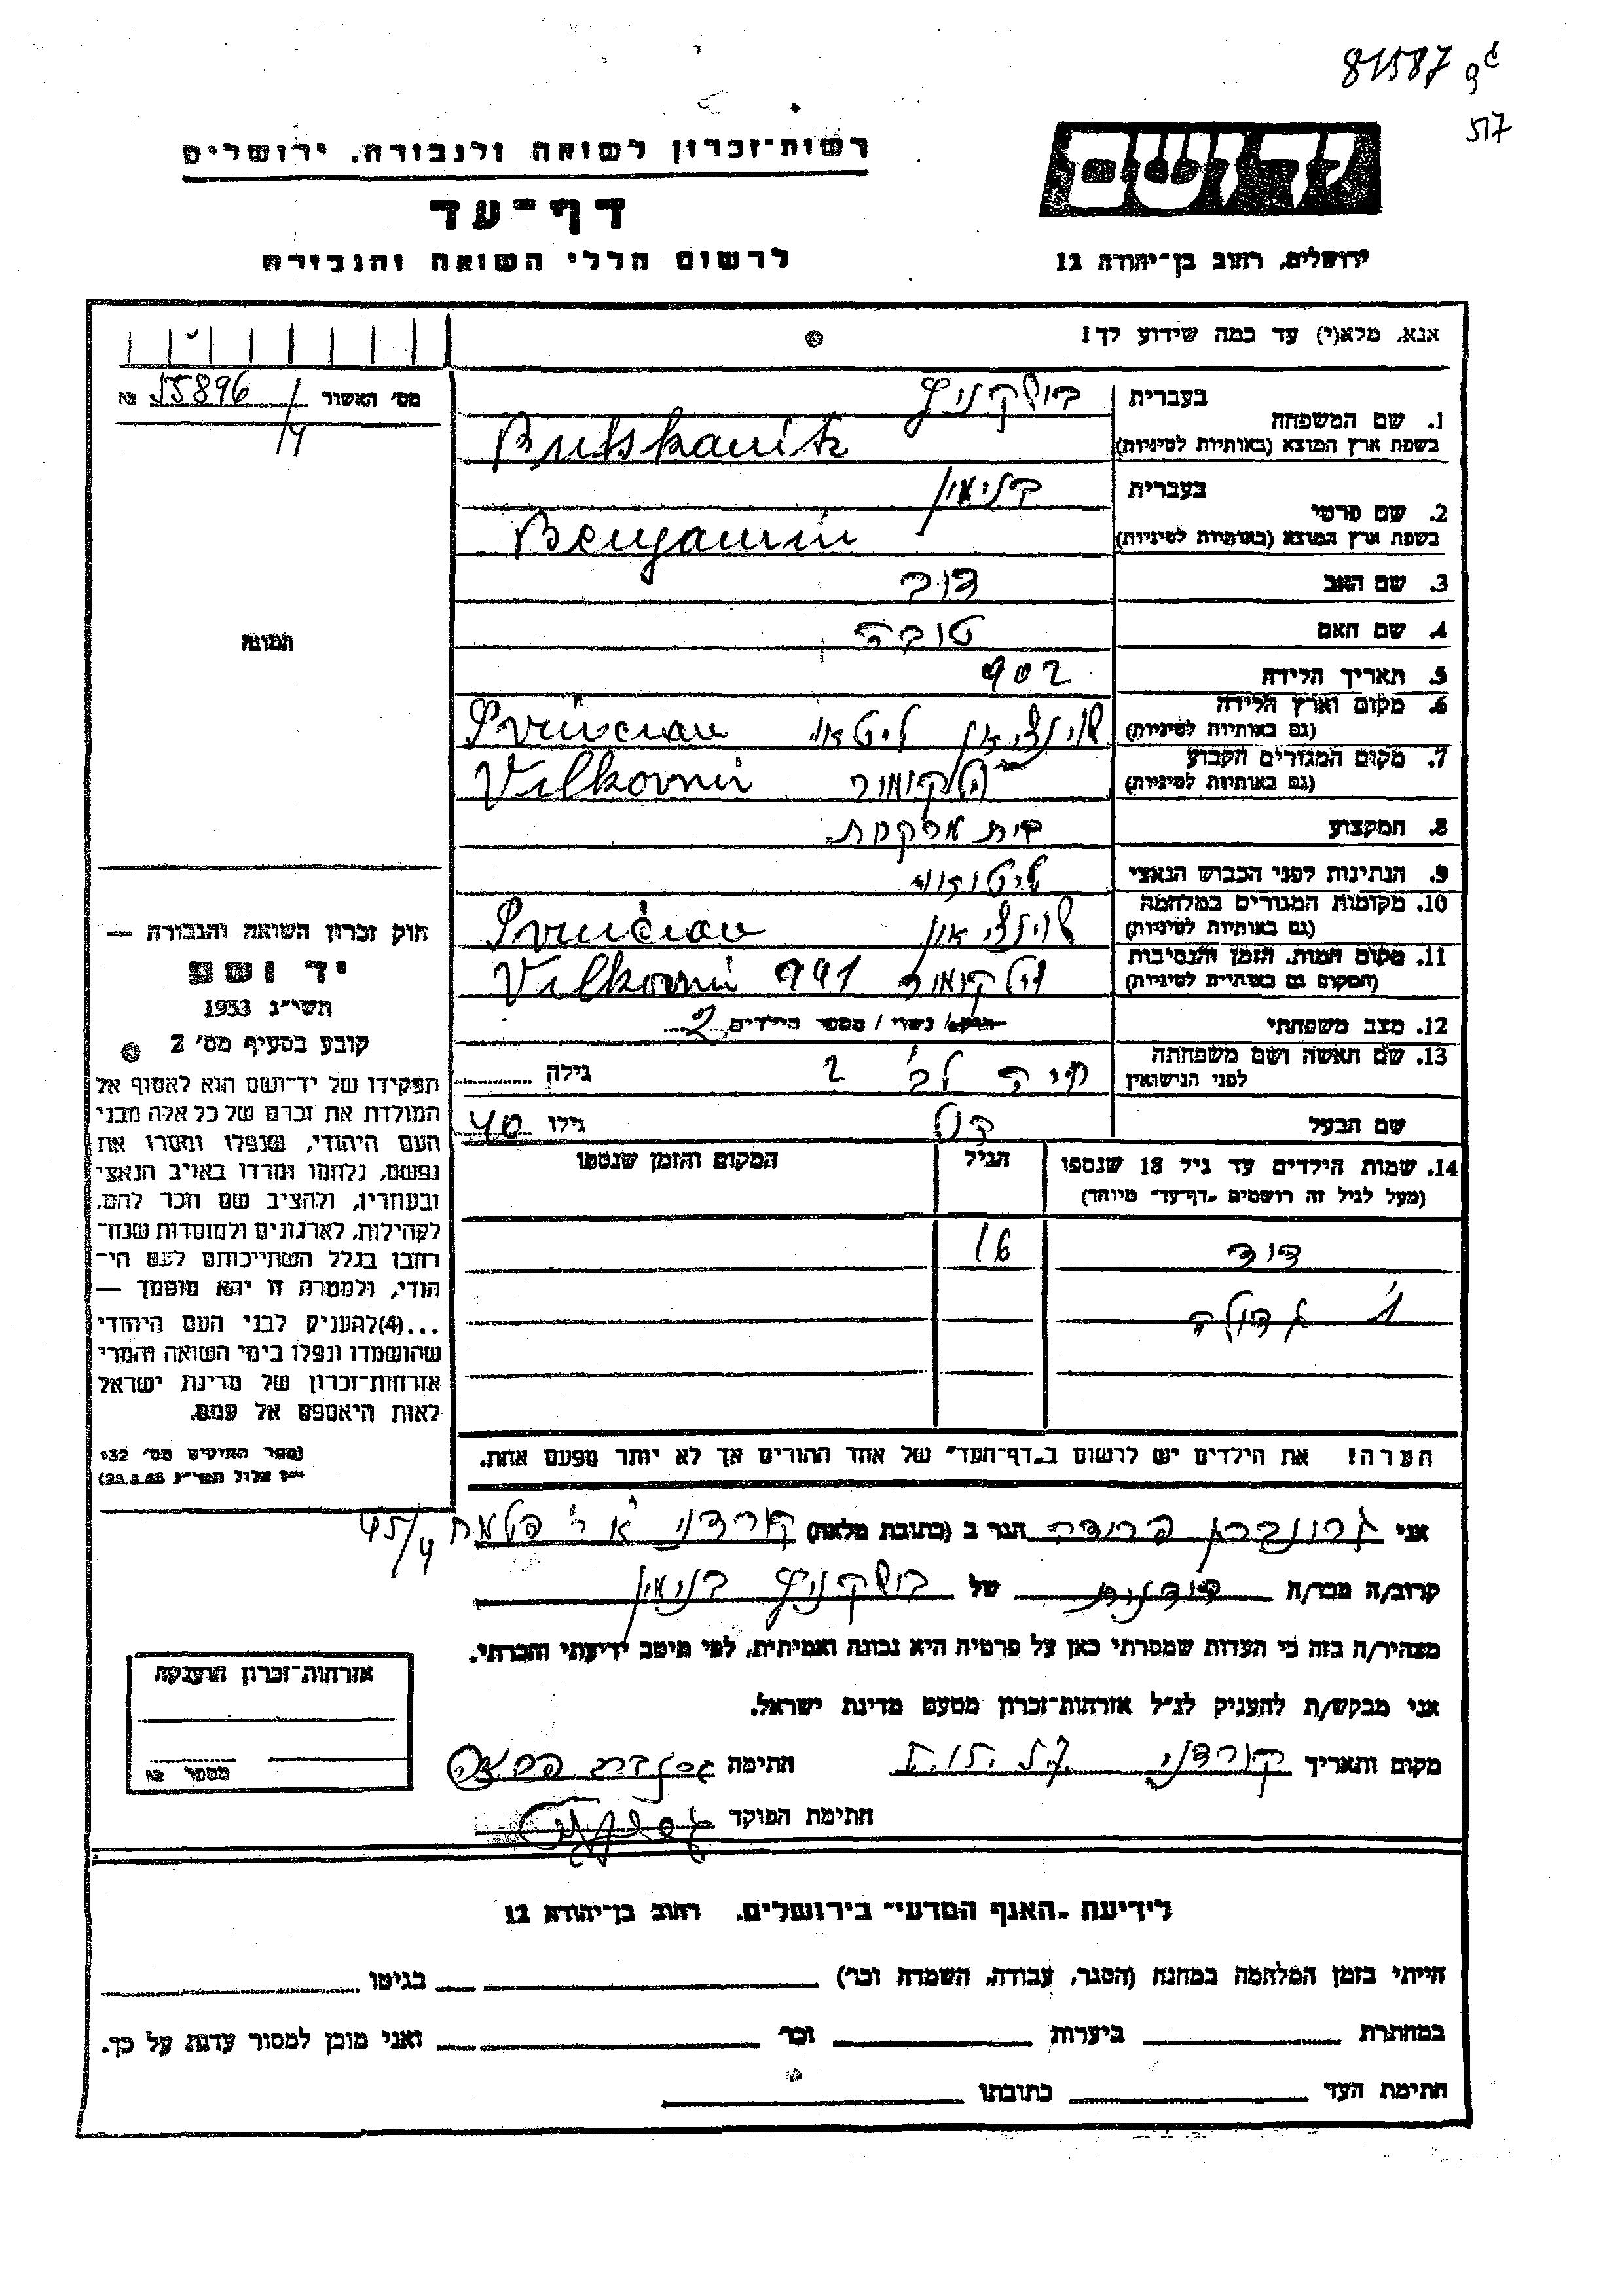 81587
517
רשות־זכרון לשואה ולגבורה, ירושלים
דף־עד
לרשום חללי השואה והגבורה
יד ושם
ירושלים, רחוב בן־יהודה 12
אנא, מלא(י) עד כמה שידוע לך!
מס׳ האשור 55896 №
1. שם המשפחה
בעברית
בשפת ארץ המוצא (באותיות לטיניות) Butskanitz
2. שם פרטי
בעברית בנימין
בשפת ארץ המוצא (באותיות לטיניות) Benjamin
3. שם האב דוב
4. שם האם טובה
5. תאריך הלידה 902
6. מקום וארץ הלידה
(גם באותיות לטיניות) ליטא
7. מקום המגורים הקבוע
(גם באותיות לטיניות) Vilkomir
8. המקצוע בית מרקחת
9. הנתינות לפני הכבוש הנאצי
10. מקומות המגורים במלחמה
(גם באותיות לטיניות)
11. מקום המות, הזמן והנסיבות
(המקום גם באותיות לטיניות) Vilkomir 941
12. מצב משפחתי רווק / נשוי / מספר הילדים 2
13. שם האשה ושם משפחתה
לפני הנישואין
גילה
שם הבעל
גילו 40
14. שמות הילדים עד גיל 18 שנספו
(מעל לגיל זה רושמים „דף־עד״ מיוחד)
הגיל
המקום והזמן שנספו
דוד 16
הערה! את הילדים יש לרשום ב„דף־העד״ של אחד ההורים אך לא יותר מפעם אחת.
תמונה
חוק זכרון השואה והגבורה —
יד ושם
תשי״ג 1953
קובע בסעיף מס׳ 2
תפקידו של יד־ושם הוא לאסוף אל
המולדת את זכרם של כל אלה מבני
העם היהודי, שנפלו ומסרו את
נפשם, נלחמו ומרדו באויב הנאצי
ובעוזריו, ולהציב שם וזכר להם,
לקהילות, לארגונים ולמוסדות שנח־
רבו בגלל השתייכותם לעם הי־
הודי, ולמטרה זו יהא מוסמך —
...(4) להעניק לבני העם היהודי
שהושמדו ונפלו בימי השואה והמרי
אזרחות־זכרון של מדינת ישראל
לאות היאספם אל עמם.
(ספר החוקים מס׳ 132
י״ז אלול תשי״ג 28.8.53)
אני גרונברג פרידה הגר ב (כתובת מלאה) קורדני א׳ 45/4
קרוב/ה מכר/ה של בנימין
מצהיר/ה בזה כי העדות שמסרתי כאן על פרטיה היא נכונה ואמיתית, לפי מיטב ידיעתי והכרתי.
אני מבקש/ת להעניק לנ״ל אזרחות־זכרון מטעם מדינת ישראל.
מקום ותאריך קורדני חתימה
חתימת הפוקד
אזרחות־זכרון הוענקה
מספר №
לידיעת „האגף המדעי״ בירושלים, רחוב בן־יהודה 12
הייתי בזמן המלחמה במחנה (הסגר, עבודה, השמדה וכו׳) בגיטו
במחתרת ביערות וכו׳ ואני מוכן למסור עדות על כך.
חתימת העד כתובתו